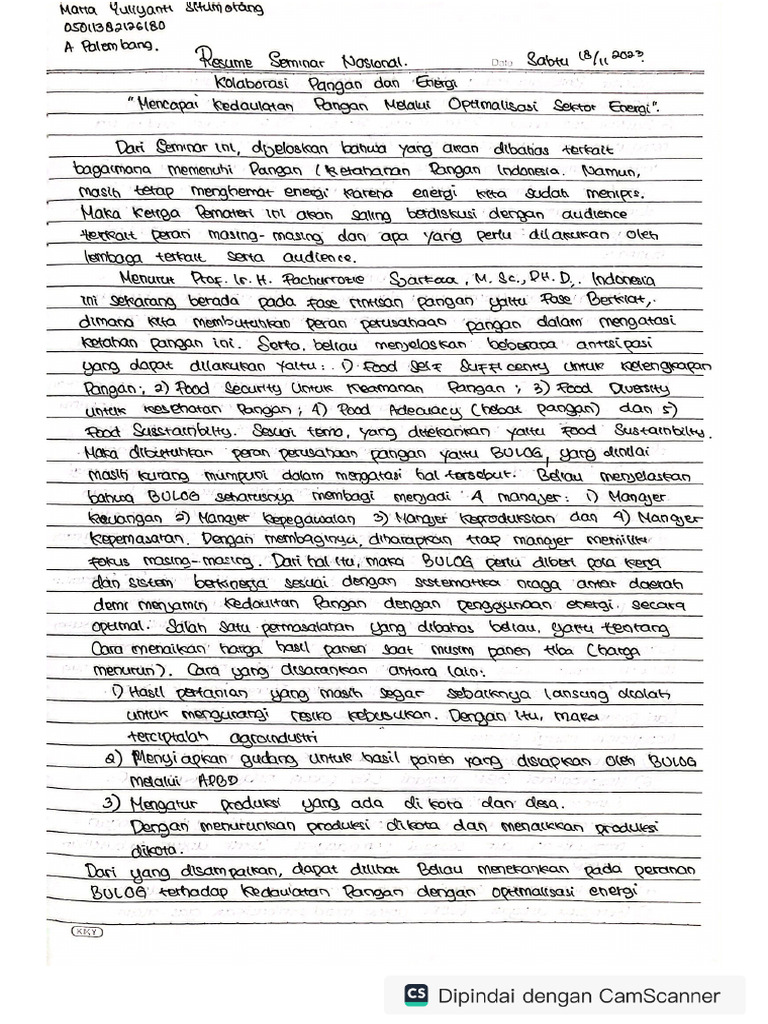 Marta Yuliyanti Situmorang
05011382126180
A Palembang.
Resume Seminar Nasional. Date Sabtu 18/11 2023
Kolaborasi Pangan dan Energi
"Mencapai Kedaulatan Pangan Melalui Optimalisasi Sektor Energi".
Dari Seminar ini, dijelaskan bahwa yang akan dibahas terkait
bagaimana memenuhi Pangan (Ketahanan Pangan Indonesia. Namun,
masih tetap menghemat energi karena energi kita sudah menipis.
Maka Ketiga Pemateri ini akan saling berdiskusi dengan audience
terkait peran masing-masing dan apa yang perlu dilakukan oleh
lembaga terkait serta audience.
Menurut Prof. Ir. H. Fachurrozie Sjarkowi, M. Sc., PH. D., Indonesia
ini sekarang berada pada fase rintisan pangan yaitu Fase Berkiat,
dimana kita membutuhkan peran perusahaan pangan dalam mengatasi
ketahan pangan ini. Serta, beliau menjelaskan beberapa antisipasi
yang dapat dilakukan yaitu: 1) Food Self Sufficenty untuk kelengkapan
Pangan; 2) Food Security Untuk Keamanan Pangan; 3) Food Diversity
untuk kesehatan Pangan; 4) Food Adecuacy (hebat pangan) dan 5)
Food Sustainbilty. Sesuai tema, yang ditekankan yaitu Food Sustainbilty.
Maka dibutuhkan peran perusahaan pangan yaitu BULOG, yang dinilai
masih kurang mumpuni dalam mengatasi hal tersebut. Beliau menjelaskan
bahwa BULOG seharusnya membagi menjadi 4 manajer: 1) Manajer
Keuangan 2) Manajer Kepegawaian 3) Manajer Keproduksian dan 4) Manajer
Kepemasaran. Dengan membaginya, diharapkan tiap manajer memiliki
fokus masing-masing. Dari hal itu, maka BULOG perlu diberi pola kerja
dan sistem berkinerja sesuai dengan sistematika niaga antar daerah
demi menjamin Kedaultan Pangan dengan penggunaan energi secara
optimal. Salah satu permasalahan yang dibahas beliau, yaitu tentang
Cara menaikan harga hasil panen saat musim panen tiba (harga
menurun). Cara yang disarankan antara lain:
1) Hasil pertanian yang masih segar sebaiknya lansung diolah,
untuk mengurangi resiko kebusukan. Dengan itu, maka
terciptalah agroindustri
2) Menyiapkan gudang untuk hasil panen yang disiapkan oleh BULOG
melalui APBD
3) Mengatur produksi yang ada di kota dan desa.
Dengan menurunkan produksi dikota dan menaikkan produksi
dikota.
Dari yang disampaikan, dapat dilihat Beliau menekankan pada peranan
BULOG terhadap Kedaulatan Pangan dengan optimalisasi energi
KKY
CS Dipindai dengan CamScanner